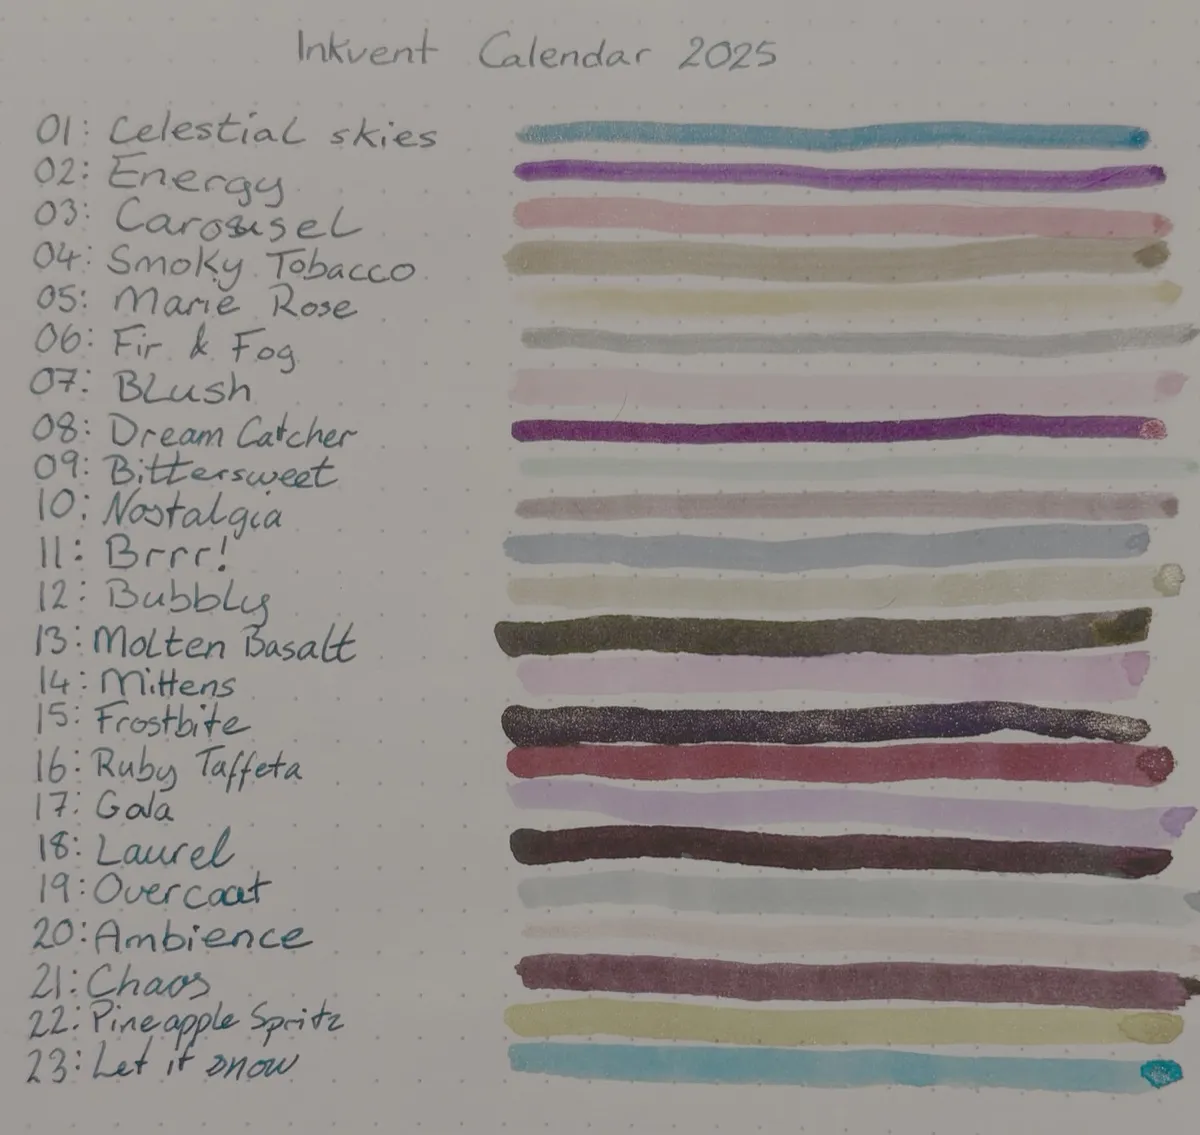 Inkvent Calendar 2025
01: Celestial skies
02: Energy
03: Carousel
04: Smoky Tobacco
05: Marie Rose
06: Fir & Fog
07: Blush
08: Dream Catcher
09: Bittersweet
10: Nostalgia
11: Brrr!
12: Bubbly
13: Molten Basalt
14: Mittens
15: Frostbite
16: Ruby Taffeta
17: Gala
18: Laurel
19: Overcoat
20: Ambience
21: Chaos
22: Pineapple Spritz
23: Let it snow